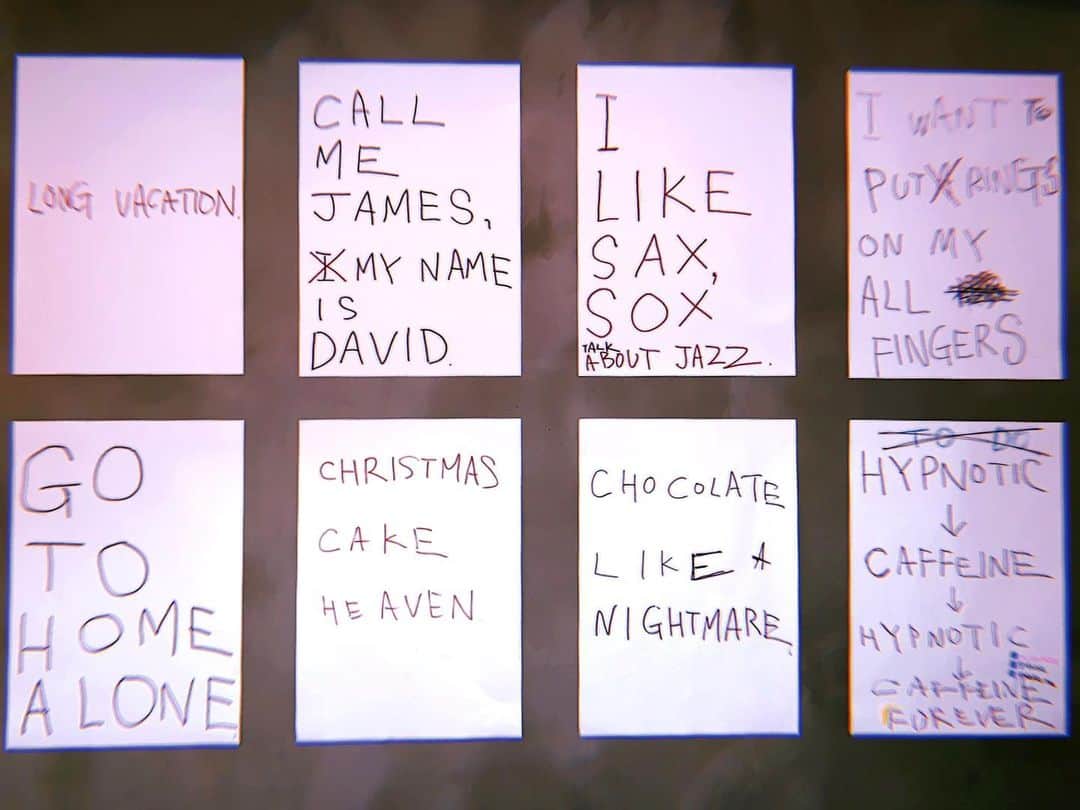 LONG VACATION.
CALL
ME
JAMES,
MY NAME
IS
DAVID.
I
LIKE
SAX,
SOX
TALK
ABOUT JAZZ.
I WANT TO
PUT RINGS
ON MY
ALL
FINGERS
GO
TO
HOME
ALONE
CHRISTMAS
CAKE
HEAVEN
CHOCOLATE
LIKE A
NIGHTMARE
TO DO
HYPNOTIC
↓
CAFFEINE
↓
HYPNOTIC
↓
CAFFEINE
FOREVER